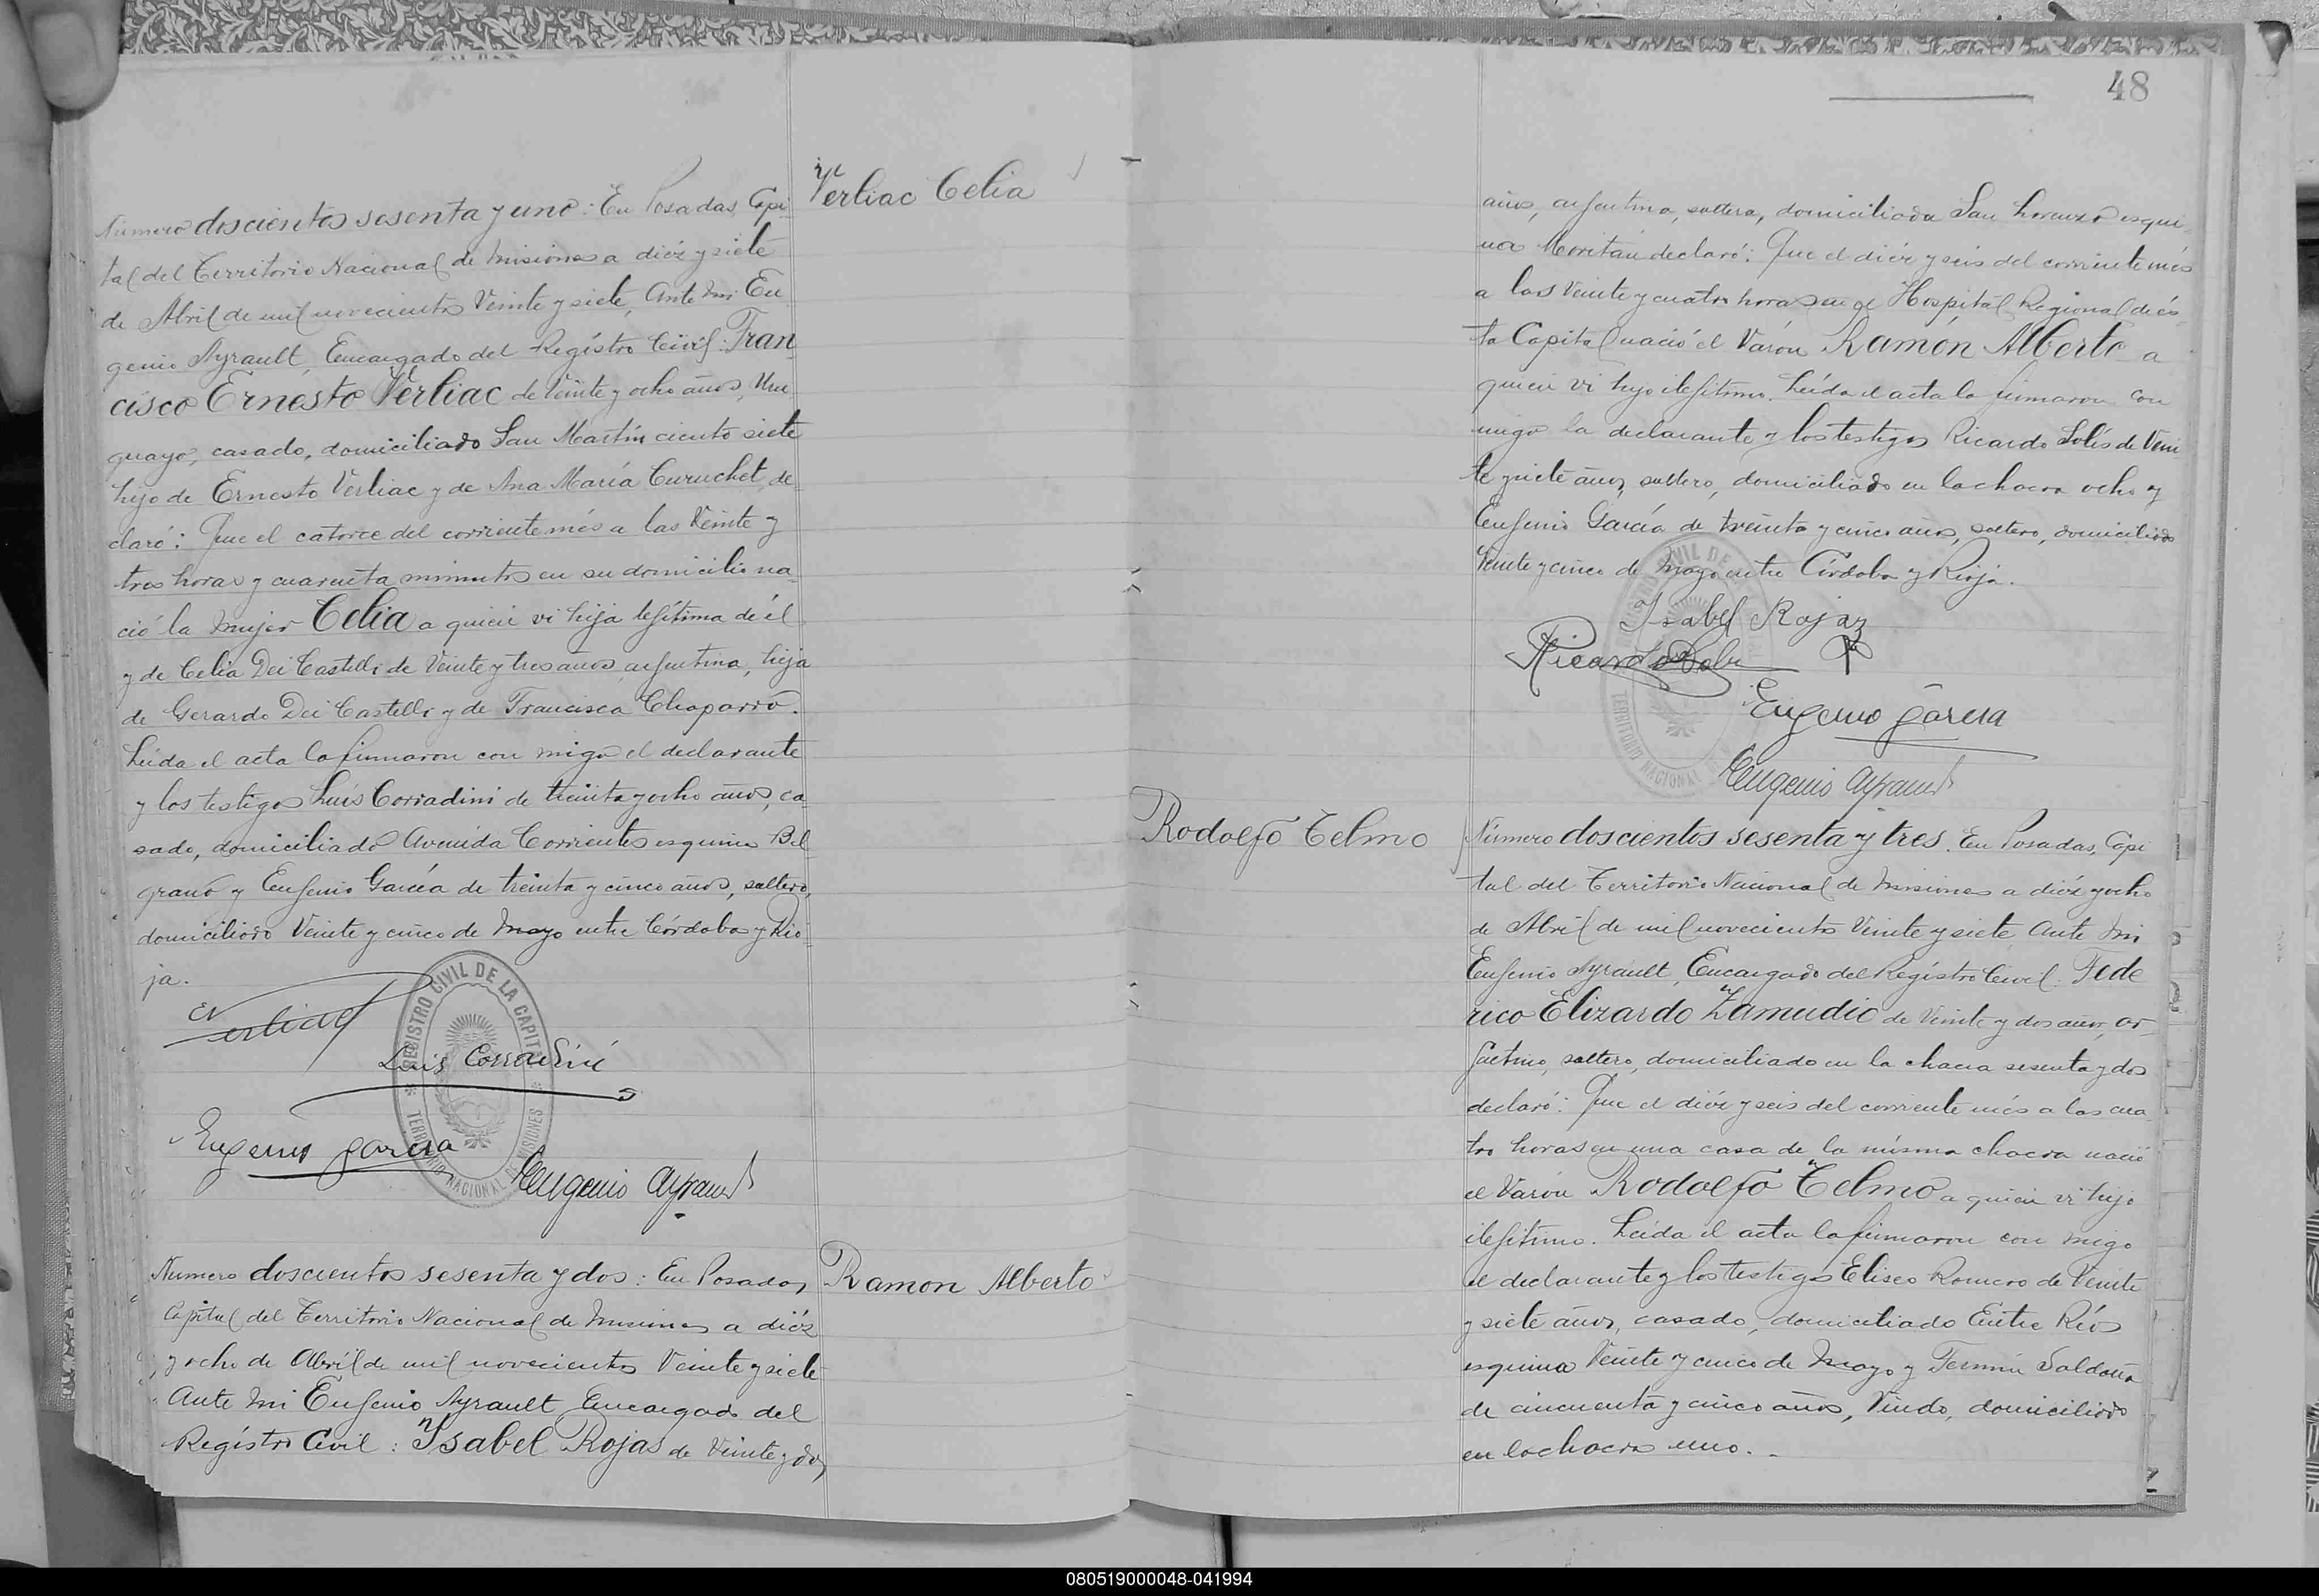 Verliac Celia
Número doscientos sesenta y uno: En Posadas, Capi
tal del Territorio Nacional de Misiones a diéz y siete
de Abril de mil novecientos Veinte y siete, Ante mi Eu
genio Ayrault, Encargado del Registro Civil: Fran
cisco Ernesto Verliac de Veinte y ocho años, Uru
guayo, casado, domiciliado San Martín ciento siete
hijo de Ernesto Verliac y de Ana María Curuchet, de
claró: Que el catorce del corriente més a las Veinte y
tres horas y cuarenta minutos en su domicilio na
ció la mujer Celia a quien vi hija legítima de él
y de Celia Dei Castelli de Veinte y tres años, argentina, hija
de Gerardo Dei Castelli y de Francisca Chaparro.
Leída el acta la firmaron con migo el declarante
y los testigos Luis Corradini de treinta y ocho años, ca
sado, domiciliado Avenida Corrientes esquina Bel
grano y Eugenio García de treinta y cinco años, soltero,
domiciliado Veinte y cinco de Mayo entre Córdoba y Rio
ja.
Verliac
Luis Corradini
Eugenio Garcia
Eugenio Ayrault
REGISTRO CIVIL DE LA CAPITAL
TERRITORIO NACIONAL DE MISIONES
Ramon Alberto
Número doscientos sesenta y dos: En Posadas,
Capital del Territorio Nacional de Misiones a diéz
y ocho de Abril de mil novecientos Veinte y siete
Ante mi Eugenio Ayrault Encargado del
Registro Civil: Ysabel Rojas de Veinte y dos
48
años, argentina, soltera, domiciliada San Lorenzo esqui
na declaró: Que el diéz y seis del corriente més
a las Veinte y cuatro horas en el Hospital Regional de és
ta Capital nació el Varón Ramón Alberto a
quien vi hijo ilegítimo. Leída el acta la firmaron con
migo la declarante y los testigos Ricardo Solís de Vein
te y siete años, soltero, domiciliado en la chacra ocho y
Eugenio García de treinta y cinco años, soltero, domiciliado
Veinte y cinco de Mayo entre Córdoba y Rioja.
Isabel Rojaz
Ricardo Solis
Eugenio Garcia
Eugenio Ayrault
Rodolfo Telmo
Número doscientos sesenta y tres. En Posadas, Capi
tal del Territorio Nacional de Misiones a diéz y ocho
de Abril de mil novecientos Veinte y siete Ante mi
Eugenio Ayrault, Encargado del Registro Civil: Fede
rico Elizardo Zamudio de Veinte y dos años, ar
gentino, soltero, domiciliado en la chacra sesenta y dos
declaró: Que el diéz y seis del corriente més a las cua
tro horas en una casa de la misma chacra nació
el Varón Rodolfo Telmo a quien vi hijo
ilegítimo. Leída el acta la firmaron con migo
el declarante y los testigos Eliseo Romero de Veinte
y siete años, casado, domiciliado Entre Ríos
esquina Veinte y cinco de Mayo y Fermin Saldaña
de cincuenta y cinco años, Viudo, domiciliado
en la chacra uno.
080519000048-041994